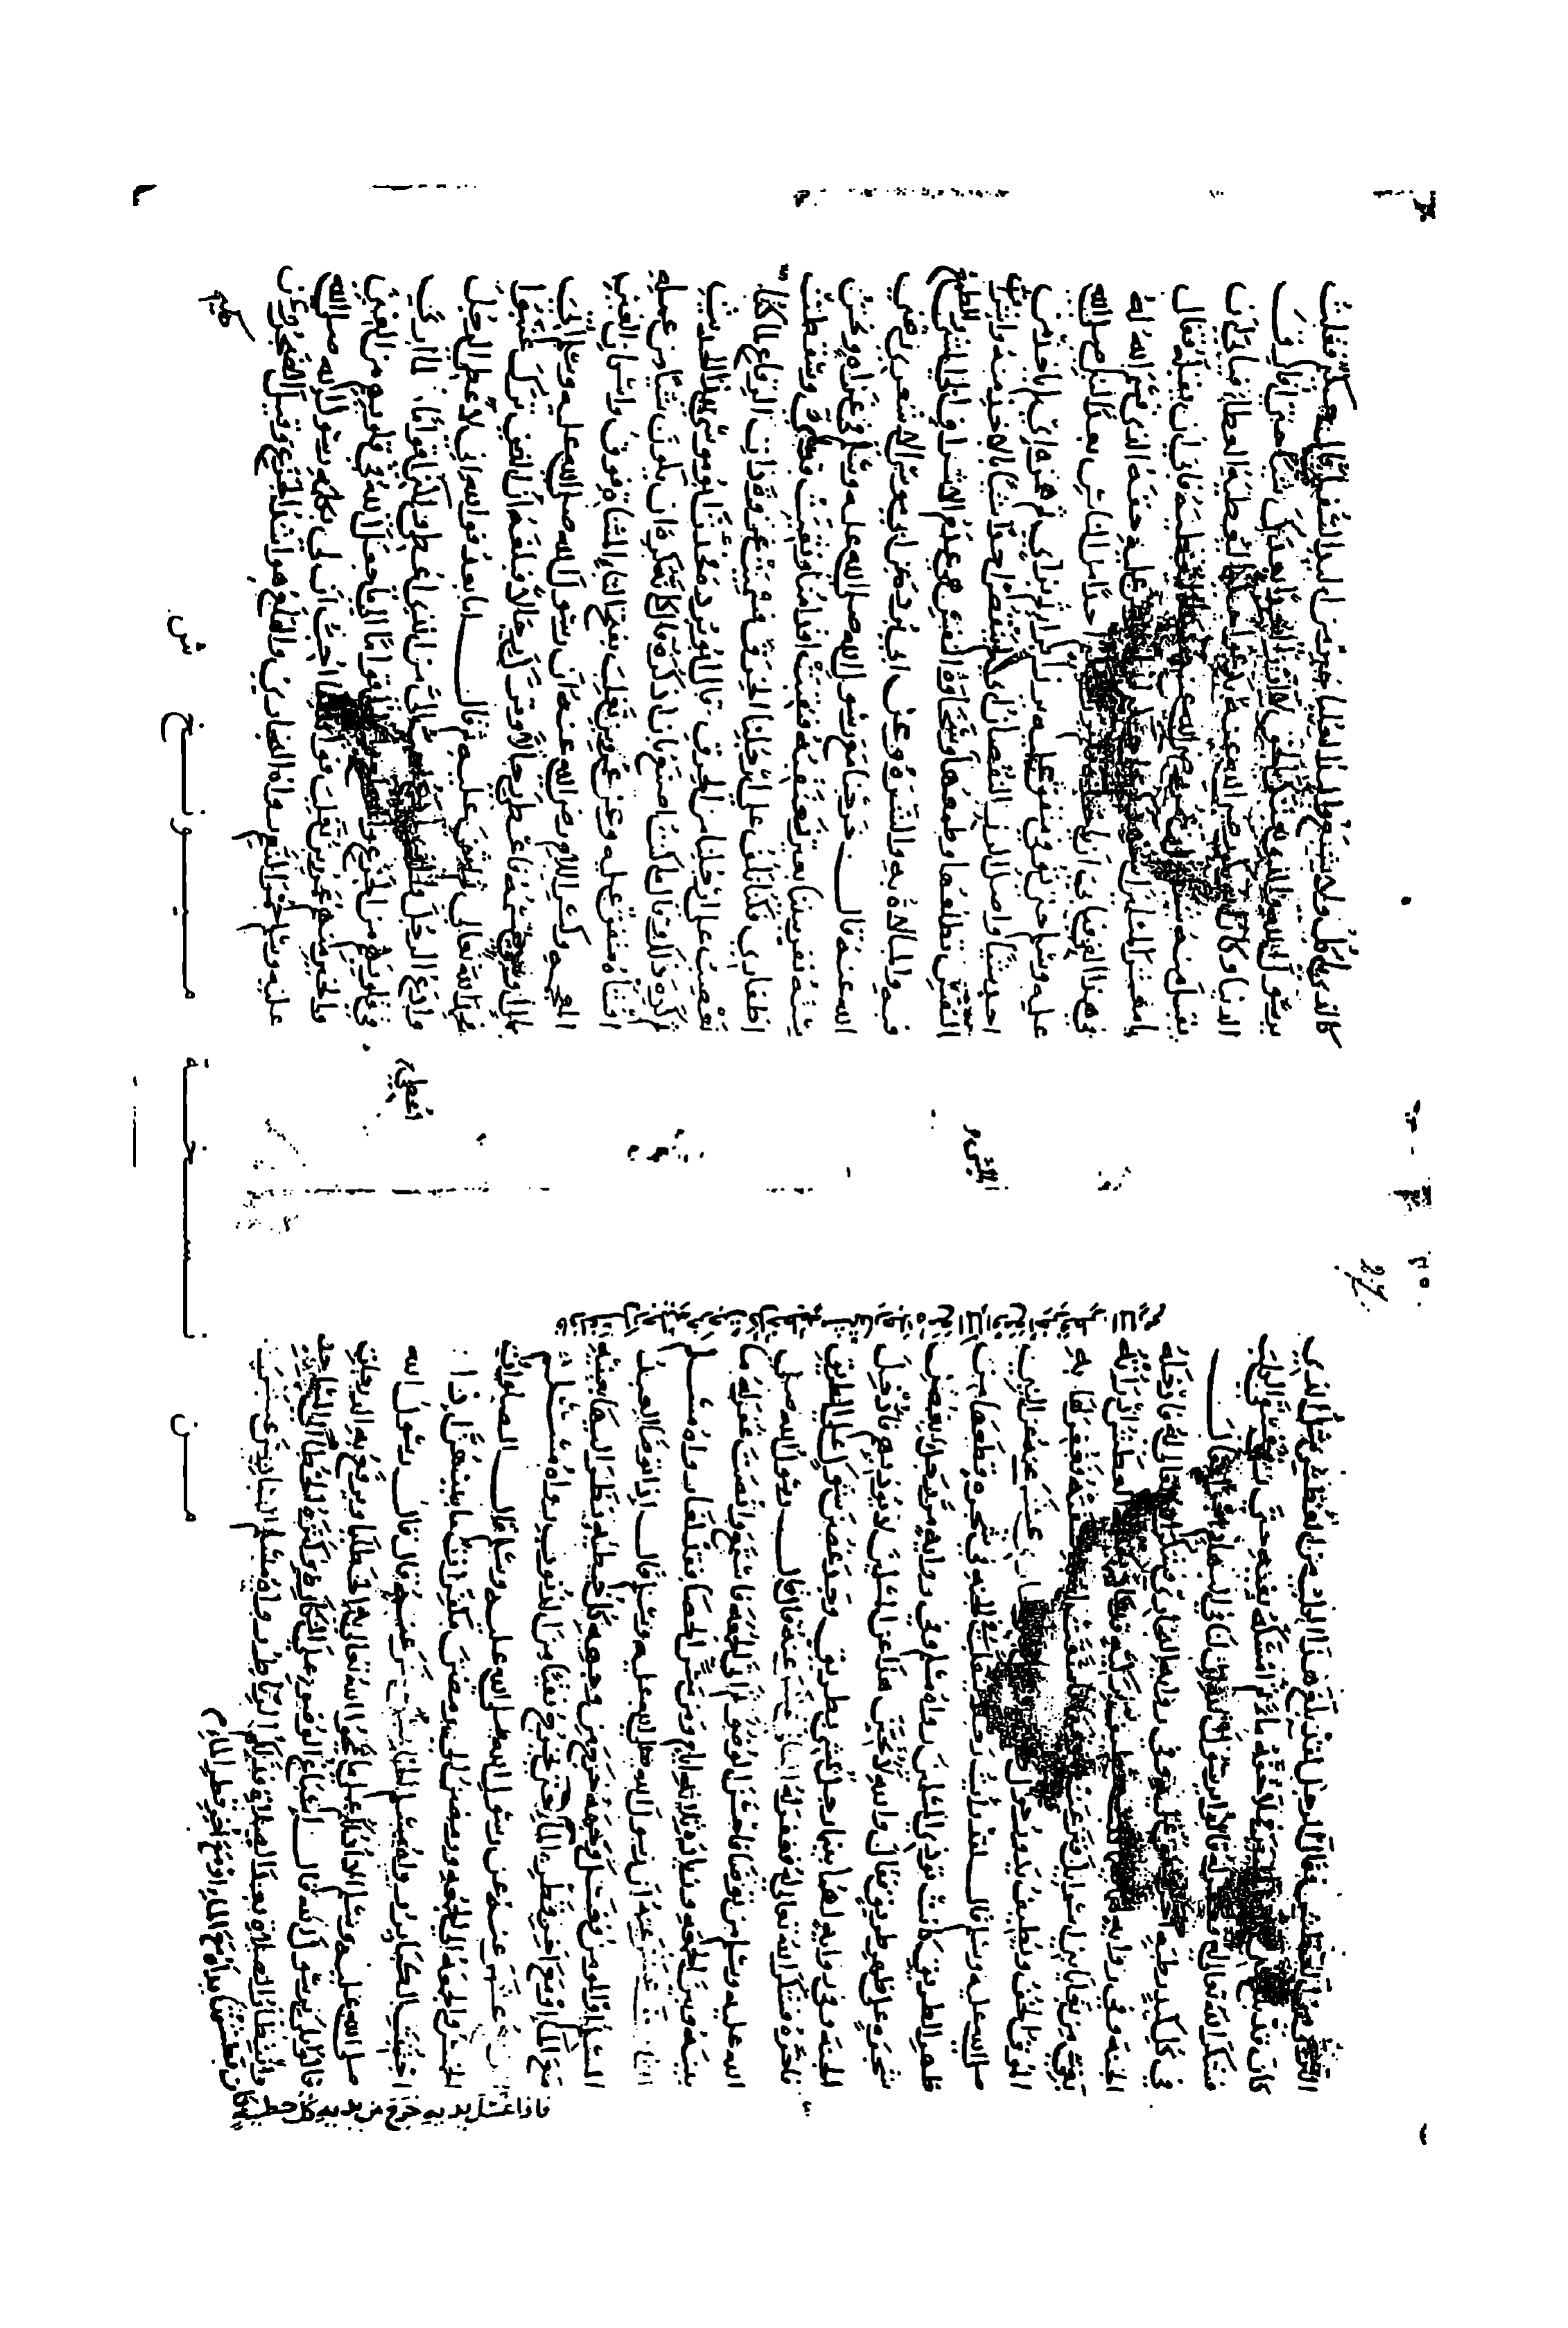 الثرى من العطش فقال الرجل لقد بلغ هذا الكلب من العطش مثل الذي
كان قد بلغ مني فملأ خفه ماء ثم أمسكه بفيه حتى رقي فسقى الكلب
فشكر الله تعالى له فغفر له قالوا يا رسول الله إن لنا في البهائم أجرا فقال
في كل كبد رطبة أجر متفق عليه وفي رواية للبخاري فشكر الله له فغفر له فأدخله
الجنة وفي رواية لهما يطيف بركية قد كاد العطش إذ رأته
بغي من بغايا بني إسرائيل فنزعت موقها فاستقت فسقته فغفر لها به
الموق الخف ويطيف يدور حول عشر عنه عن النبي
صلى الله عليه وسلم قال لقد رأيت رجلا يتقلب في الجنة في شجرة قطعها من
ظهر الطريق كانت تؤذي المسلمين رواه مسلم وفي رواية مر رجل بغصن
شجرة على ظهر طريق فقال والله لأنحين هذا عن المسلمين لا يؤذيهم فأدخل
الجنة وفي رواية لهما بينما رجل يمشي بطريق وجد غصن شوك على الطريق
فأخره فشكر الله تعالى له فغفر له الثاني عشر عنه قال قال رسول الله صلى
الله عليه وسلم من توضأ فأحسن الوضوء ثم أتى الجمعة فاستمع وأنصت غفر له ما
بينه وبين الجمعة وزيادة ثلاثة أيام ومن مس الحصا فقد لغا رواه مسلم
الثالث عشر عنه أن رسول الله صلى الله عليه وسلم قال إذا توضأ العبد
المسلم أو المؤمن فغسل وجهه خرج من وجهه كل خطيئة نظر إليها بعينيه
مع الماء أو مع آخر قطر الماء حتى يخرج نقيا من الذنوب رواه مسلم
عشر عنه عن رسول الله صلى الله عليه وسلم قال الصلوات
الخمس والجمعة إلى الجمعة ورمضان إلى رمضان مكفرات لما بينهن إذا
اجتنبت الكبائر رواه مسلم الخامس عشر عنه قال قال رسول الله
صلى الله عليه وسلم ألا أدلكم على ما يمحو الله تعالى به الخطايا ويرفع به الدرجات
قالوا بلى يا رسول الله قال إسباغ الوضوء على المكاره وكثرة الخطا إلى المساجد
وانتظار الصلاة بعد الصلاة فذلكم الرباط رواه مسلم السادس عشر عن
فاذا غسل يديه خرج من يديه كل خطيئة
كان بطشتها يداه مع الماء أو مع آخر قطر الماء
كالذي يأكل ولا يشبع واليد العليا خير من اليد السفلى قال حكيم فقلت
يا رسول الله والذي بعثك بالحق لا أرزأ أحدا بعدك شيئا حتى أفارق
الدنيا وكان أبو بكر رضي الله عنه يدعو حكيما ليعطيه العطاء فيأبى أن
يقبل منه شيئا ثم إن عمر رضي الله عنه دعاه ليعطيه فأبى أن يقبله فقال
يا معشر المسلمين عليه حقه الذي قسم الله له
في هذا الفيء فيأبى أن يأخذه فلم يرزأ حكيم أحدا من الناس بعد النبي صلى الله
عليه وسلم حتى توفي متفق عليه يرزأ براء ثم زاي ثم همزة أي لم يأخذ من
أحد شيئا وأصل الرزء النقصان أي لم ينقص أحدا شيئا بالأخذ منه وإشراف
النفس تطلعها وطمعها وسخاوة النفس هي عدم الإشراف إلى الشيء والطمع
فيه والمبالاة به والشره وعن أبي بردة عن أبي موسى الأشعري رضي
الله عنه قال خرجنا مع رسول الله صلى الله عليه وسلم في غزاة ونحن
ستة نفر بيننا بعير نعتقبه فنقبت أقدامنا ونقبت قدمي وسقطت
أظفاري فكنا نلف على أرجلنا الخرق فسميت غزوة ذات الرقاع لما كنا
نعصب على أرجلنا من الخرق قال أبو بردة فحدث أبو موسى بهذا الحديث ثم
كره ذلك وقال ما كنت أصنع بأن أذكره قال كأنه كره أن يكون شيئا من عمله
أفشاه متفق عليه وعن عمرو بن تغلب بفتح التاء المثناة فوق وإسكان الغين
المعجمة وكسر اللام رضي الله عنه أن رسول الله صلى الله عليه وسلم أتي
بمال أو سبي فقسمه فأعطى رجالا وترك رجالا فبلغه أن الذين ترك عتبوا
فحمد الله تعالى ثم أثنى عليه ثم قال أما بعد فوالله إني لأعطي الرجل
وأدع الرجل والذي أدع أحب إلي من الذي أعطي ولكني أعطي أقواما لما أرى
في قلوبهم من الجزع والهلع وأكل أقواما إلى ما جعل الله في قلوبهم من الغنى
والخير منهم عمرو بن تغلب فوالله ما أحب أن لي بكلمة رسول الله صلى الله
عليه وسلم حمر النعم رواه البخاري والهلع هو أشد الجزع وقيل الضجر وعن
حكيم